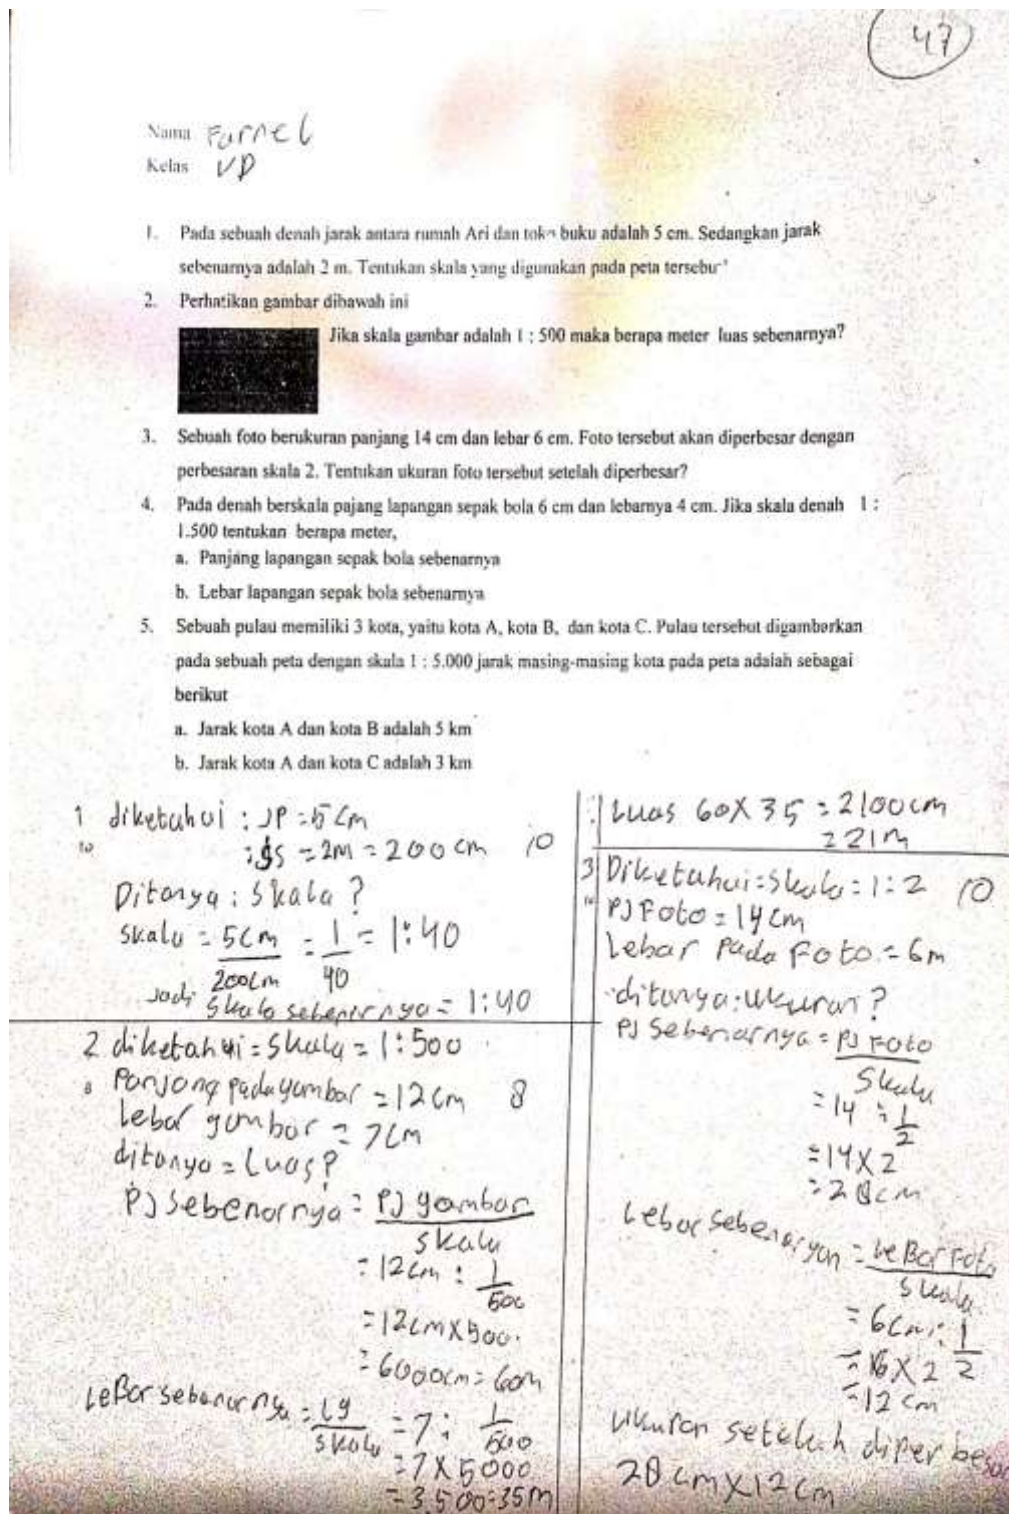 47
Nama Farnel
Kelas VD
1. Pada sebuah denah jarak antara rumah Ari dan toko buku adalah 5 cm. Sedangkan jarak
sebenarnya adalah 2 m. Tentukan skala yang digunakan pada peta tersebut
2. Perhatikan gambar dibawah ini
Jika skala gambar adalah 1 : 500 maka berapa meter luas sebenarnya?
3. Sebuah foto berukuran panjang 14 cm dan lebar 6 cm. Foto tersebut akan diperbesar dengan
perbesaran skala 2. Tentukan ukuran foto tersebut setelah diperbesar?
4. Pada denah berskala pajang lapangan sepak bola 6 cm dan lebarnya 4 cm. Jika skala denah 1 :
1.500 tentukan berapa meter,
a. Panjang lapangan sepak bola sebenarnya
b. Lebar lapangan sepak bola sebenarnya
5. Sebuah pulau memiliki 3 kota, yaitu kota A, kota B, dan kota C. Pulau tersebut digambarkan
pada sebuah peta dengan skala 1 : 5.000 jarak masing-masing kota pada peta adalah sebagai
berikut
a. Jarak kota A dan kota B adalah 5 km
b. Jarak kota A dan kota C adalah 3 km
1 diketahui : JP = 5 cm
10 : JS = 2M = 200 cm 10
Ditanya : Skala ?
Skala = 5cm = 1 = 1:40
200cm 40
Jadi Skala sebenarnya = 1:40
2 diketahui = Skala = 1:500
8 Panjang pada gambar = 12 cm 8
Lebar gambar = 7cm
ditanya = Luas?
PJ Sebenarnya = PJ gambar
Skala
= 12cm : 1
500
= 12cm X 500
= 6000cm = 60m
LeBar sebenarnya = Lg = 7 : 1
Skala 500
= 7 X 5000
= 3.500 = 35m
: Luas 60 X 35 = 2100cm
= 21m
3 Diketahui = Skala = 1:2 10
10 PJ Foto = 14 cm
Lebar Pada Foto = 6m
ditanya : Ukuran ?
PJ Sebenarnya = PJ Foto
Skala
= 14 : 1
2
= 14 X 2
= 28cm
Lebar Sebenaryan = LeBar Foto
Skala
= 6cm : 1
2
= 6 X 2
= 12 cm
Ukuran setelah diperbesar
28 cm X 12 cm